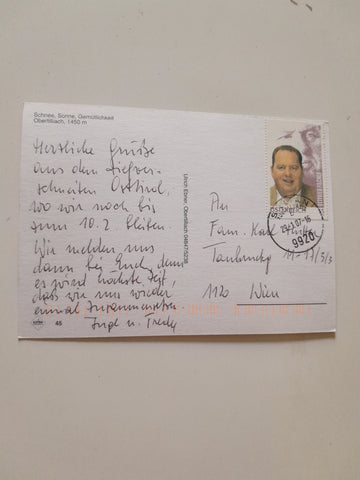 Schnee, Sonne, Gemütlichkeit
Obertilliach, 1450 m
Herzliche Grüße
aus dem tiefver-
schneiten Osttirol,
wo wir noch bis
zum 10.2. bleiben.
Wir melden uns
dann bei Euch, denn
es wird höchste Zeit,
dass wir uns wieder
einmal zusammensetzen.
Inge u.
45
Ulrich Ebner, Obertilliach 04847/5238
An
Fam. Karl
1120 Wien
Österreich
9920